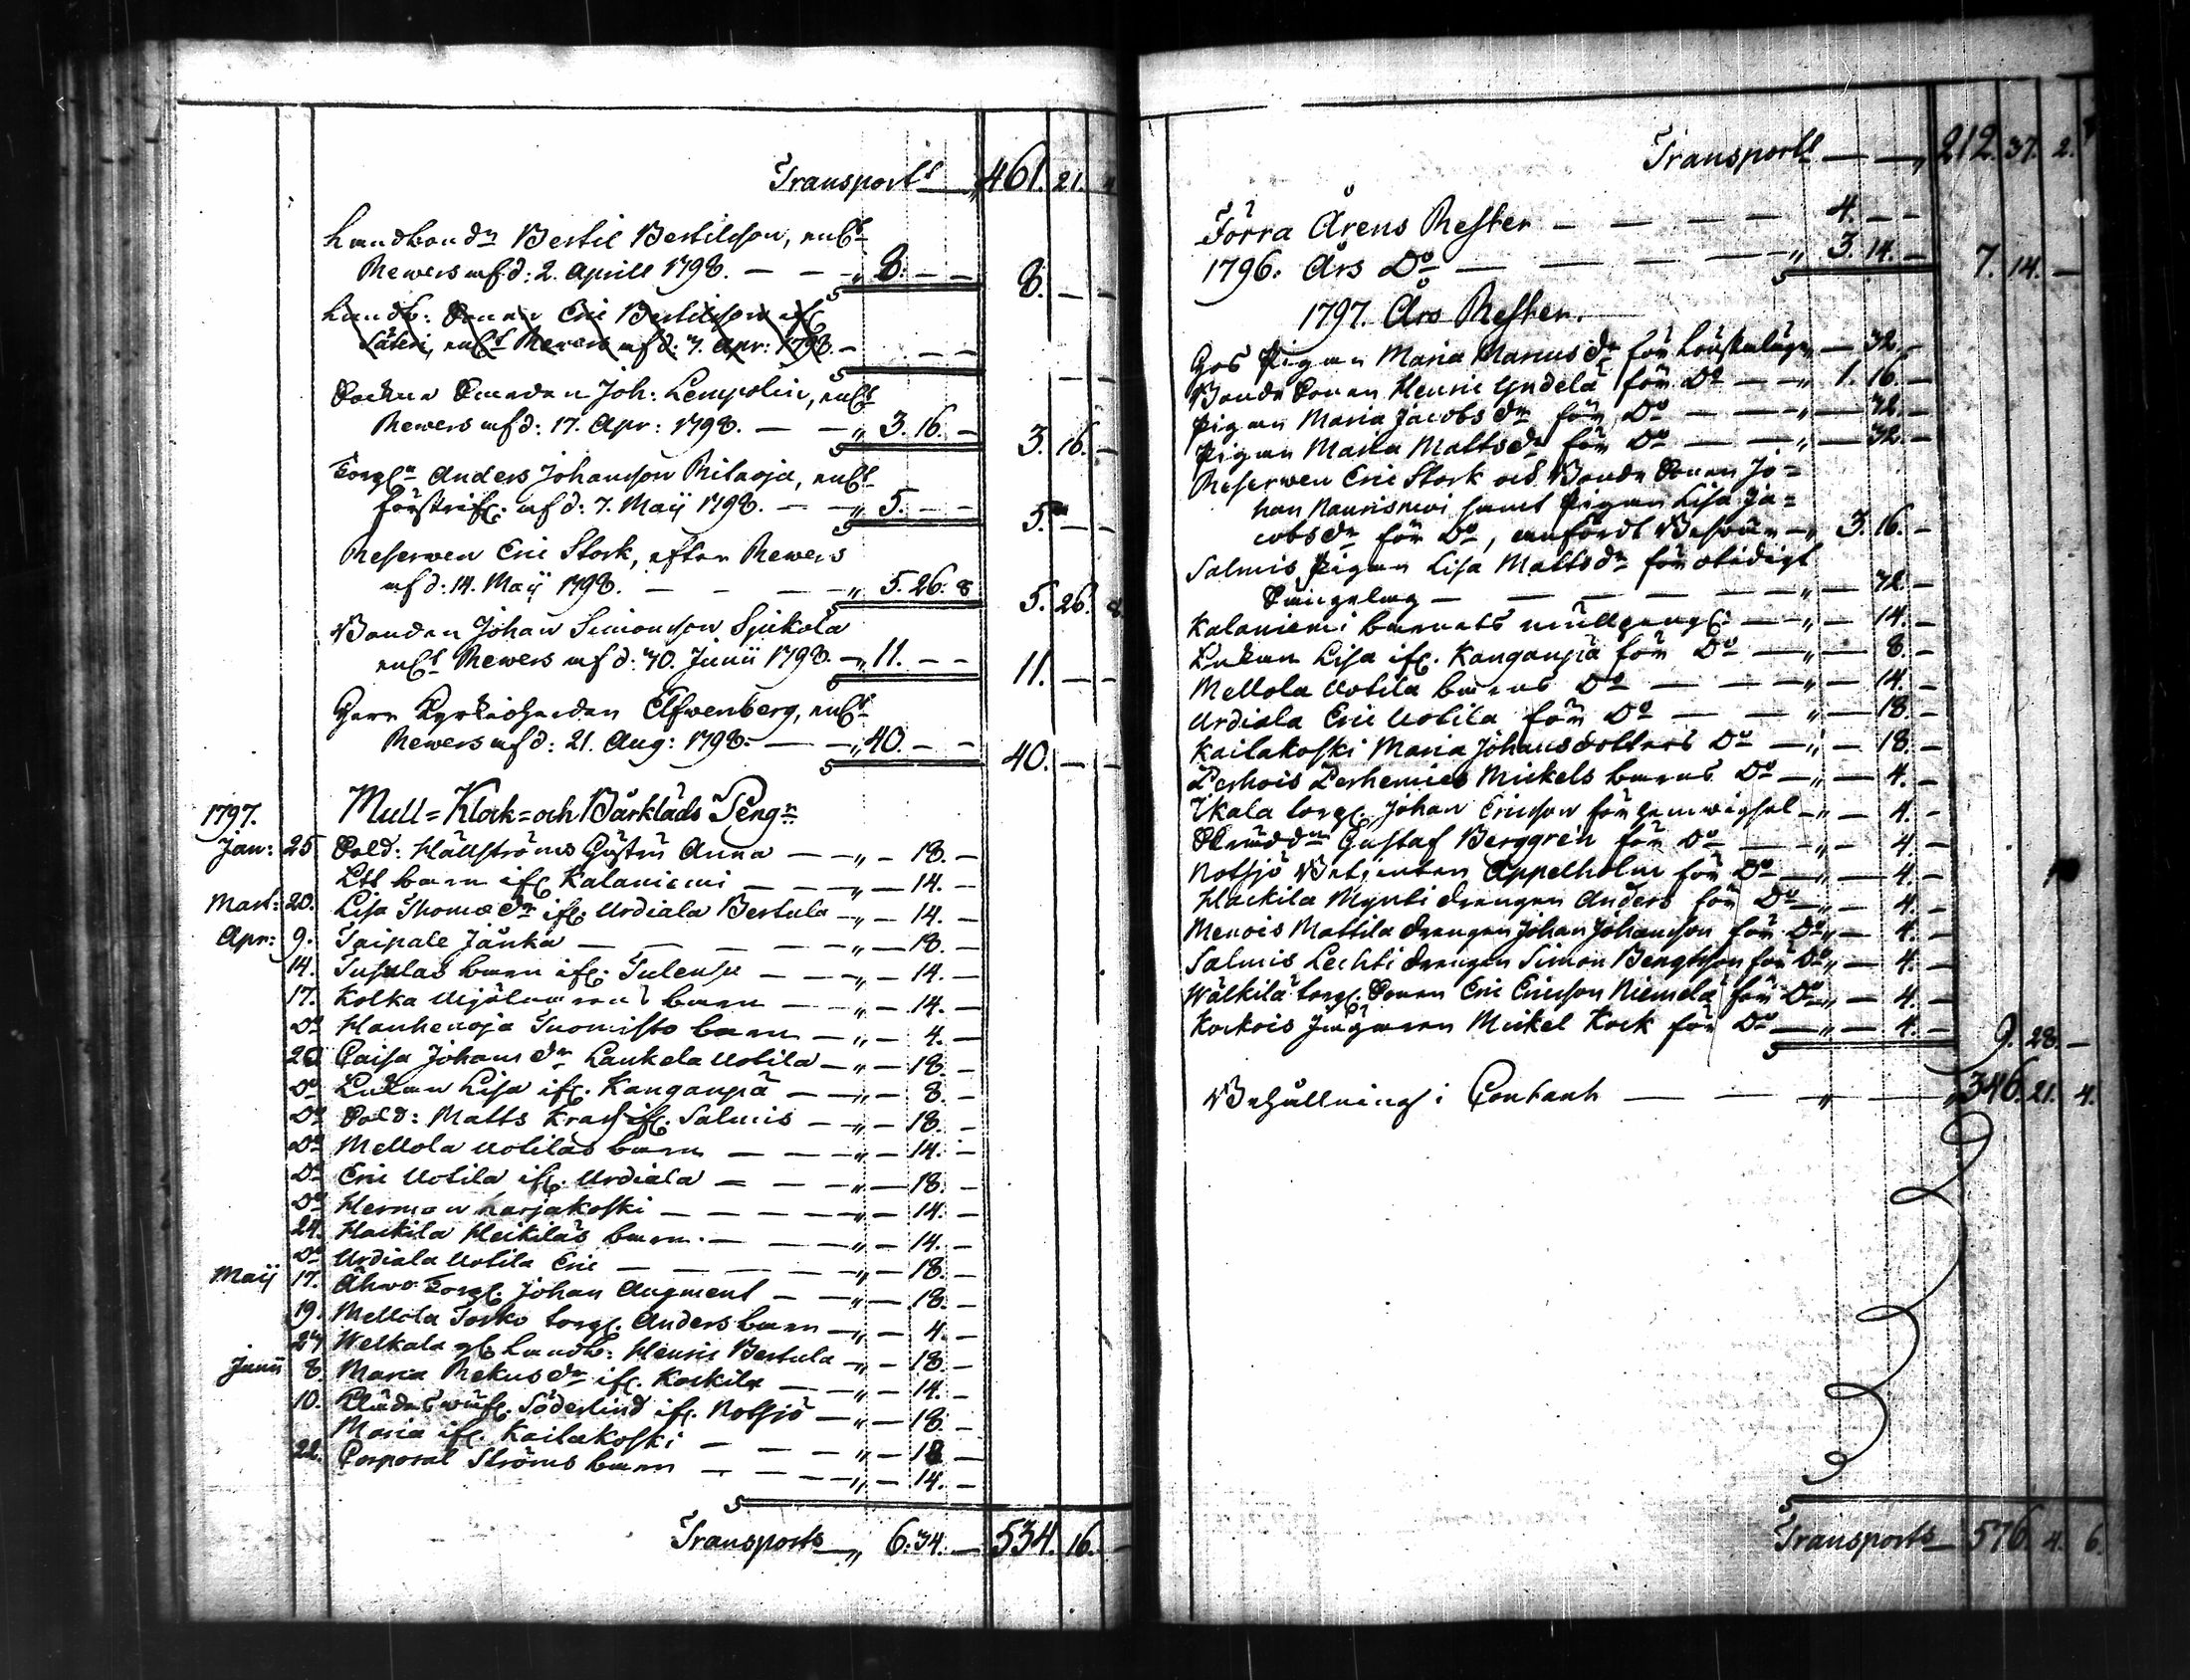 Transport — 461. 21. 4
Landbond:n Bertil Bertilsson, enl:t
Revers af d: 2. Aprill 1798. — — 8. — — 8. — —
Landb: Sonen Eric Bertilsson i
Säteri, enl:t Revers af d: 7. Apr: 1798. — — —
Sockne Smeden Joh: Lempelin, enl:t
Revers af d: 17. Apr: 1798. — — 3. 16. — 3. 16. —
Torp:n Anders Johansson Ritaoja, enl:t
förskrifn. af d: 7. Maij 1798. — — 5. — — 5. — —
Reserven Eric Stork, efter Revers
af d: 14. Maij 1798. — — — 5. 26. 8 5. 26. 8
Bonden Johan Simonsson Sjukola
enl:t Revers af d: 30. Junii 1798. — 11. — — 11. — —
Herr Kyrkioherden Elfwenberg, enl:t
Revers af d: 21. Aug: 1798. — — 40. — — 40. — —
1797. Mull= Klock= och Bårkläds Peng:r
Jan: 25 Sold: Hällströms Hustru Anna — — 18. —
Ett barn ifr. Kalaniemi — — 14. —
Mart: 20. Lisa Thomæd:r ifr. Urdiala Bertula — — 14. —
Apr: 9. Taipale Jänkä — — — 18. —
14. barn ifr. — — 14. —
17. Kolka barn — — 14. —
D:o Hanhenoja Suomisto barn — — 4. —
20 Caisa Johansd:r Laukela Uotila — — 18. —
D:o Enkan Lisa ifr. Kanganpä — — 8. —
D:o Sold: Matts Krast ifr. Salmis — — 18. —
D:o Mellola Uotilas barn — — — 14. —
D:o Eric Uotila ifr. Urdiala — — — 18. —
D:o Herman Harjakoski — — — 14. —
24. Hackila Heikiläs barn. — — — 14. —
D:o Urdiala Uotila Eric — — — 18. —
Maij 17. Ähwo Torp. Johan Augment — — 18. —
19. Mellola Torko torp. Anders barn — — 4. —
27 Welkala Landb: Henric Bertula — — 18. —
Junii 8. Maria Rekusd:r ifr. Kockila — — 14. —
10. Söderlind ifr. Notsjö — — 18. —
Maria ifr. Kailakoski — — — 18 —
22. Corporal Ströms barn — — — 14. —
Transport — 6. 34. — 534. 16. —
Transport — — 212. 37. 2.
Förra Årens Rester — — — — 4. — —
1796. Års D:o — — — — 3. 14. — 7. 14. —
1797. Års Rester.
Hos Pigan Maria Mariusd:r för Lönskaläge — 32. —
Bonde Sonen Henric Yndelä för D:o — — 1. 16. —
Pigan Maria Jacobsd:r för D:o — — — 32. —
Pigan Maria Mattsd:r för D:o — — — 32. —
Reserven Eric Stork och Bonde Sonen Jo=
han Naurisnivi samt Pigan Lisa Ja=
cobsd:r för D:o, — 3. 16. —
Salmis Pigan Lisa Mattsd:r för otidigt
Sängelag — — — — — 32. —
Kalaniemi barnets mullpeng: — — 14. —
Enkan Lisa ifr. Kanganpä för D:o — — 8. —
Mellola Uotila barns D:o — — — 14. —
Urdiala Eric Uotila för D:o — — 18. —
Kailakoski Maria Johansdotters D:o — — 18. —
Lerhois Lerhemies Mickels barns D:o — — 4. —
Ikala torp. Johan Ericsson för hemvigsel — — 4. —
Skrädd:n Gustaf Berggren för D:o — — 4. —
Notsjö Betjenten Appelholm för D:o — — 4. —
Hackila Myntti drengen Anders för D:o — — 4. —
Menois Mattila drengen Johan Johansson för D:o — 4. —
Salmis Lechti drengen Simon Bengtsson för D:o — 4. —
Wälkilä torp. Sonen Eric Ericsson Niemelä för D:o — 4. —
Kockois Jägaren Mickel Kock för D:o — — 4. — 9. 28. —
Behållning i Contant — — — 346. 21. 4.
Transport — 576. 4. 6.